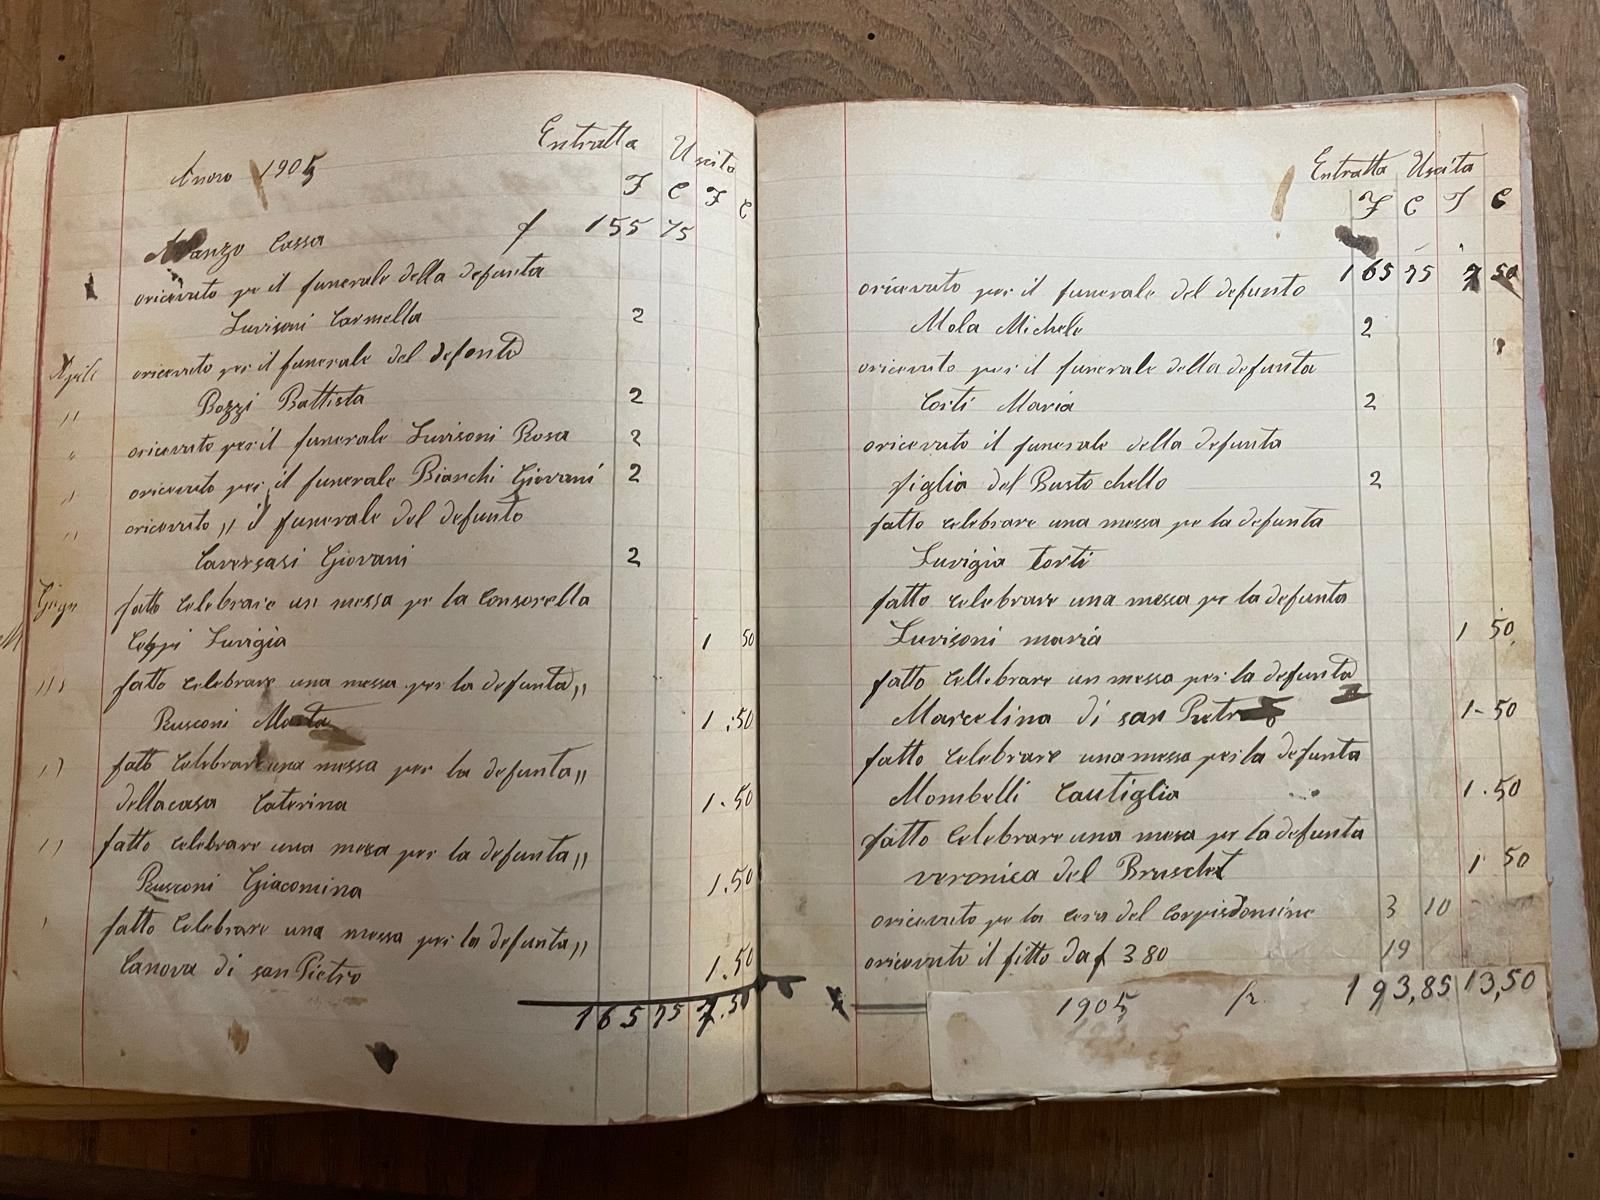 Entratta Uscita
Anno 1905
F C F C
Avanzo Cassa f 155 75
oricevuto pe il funerale della defunta
Luvisoni Carmella 2
Aprile oricevuto per il funerale del defonto
" Bozzi Battista 2
" oricevuto per il funerale Luvisoni Rosa 2
" oricevuto per il funerale Bianchi Giovani 2
" oricevuto " il funerale del defunto
Caversasi Giovani 2
Giugn fatto celebrare un messa pe la Consorella
Ceppi Luvigia 1 50
" fatto celebrare una messa per la defunta "
Rusconi 1.50
" fatto celebrare una messa per la defunta "
dellacasa Caterina 1.50
" fatto celebrare una messa per la defunta "
Rusconi Giacomina 1.50
fatto celebrare una messa per la defunta "
Canova di san Pietro 1.50
165 75 7.50
Entratta Uscita
F C F C
165 75 7 50
oricevuto per il funerale del defunto
Mola Michele 2
oricevuto per il funerale della defunta
Corti Maria 2
oricevuto il funerale della defunta
figlia del Bustochello 2
fatto celebrare una messa pe la defunta
Luvigia Torti
fatto celebrare una messa pe la defunta
Luvisoni maria 1 50
fatto cellebrare un messa per la defunta
Marcelina di san Pietro 1-50
fatto celebrare una messa per la defunta
Mombelli Cautiglia 1.50
fatto celebrare una messa pe la defunta
veronica del Bruschet 1 50
oricevuto pe la cera del Corpisdomine 3 10
oricevuto il fitto da f 3 80 19
1905 fr. 193,85 13,50